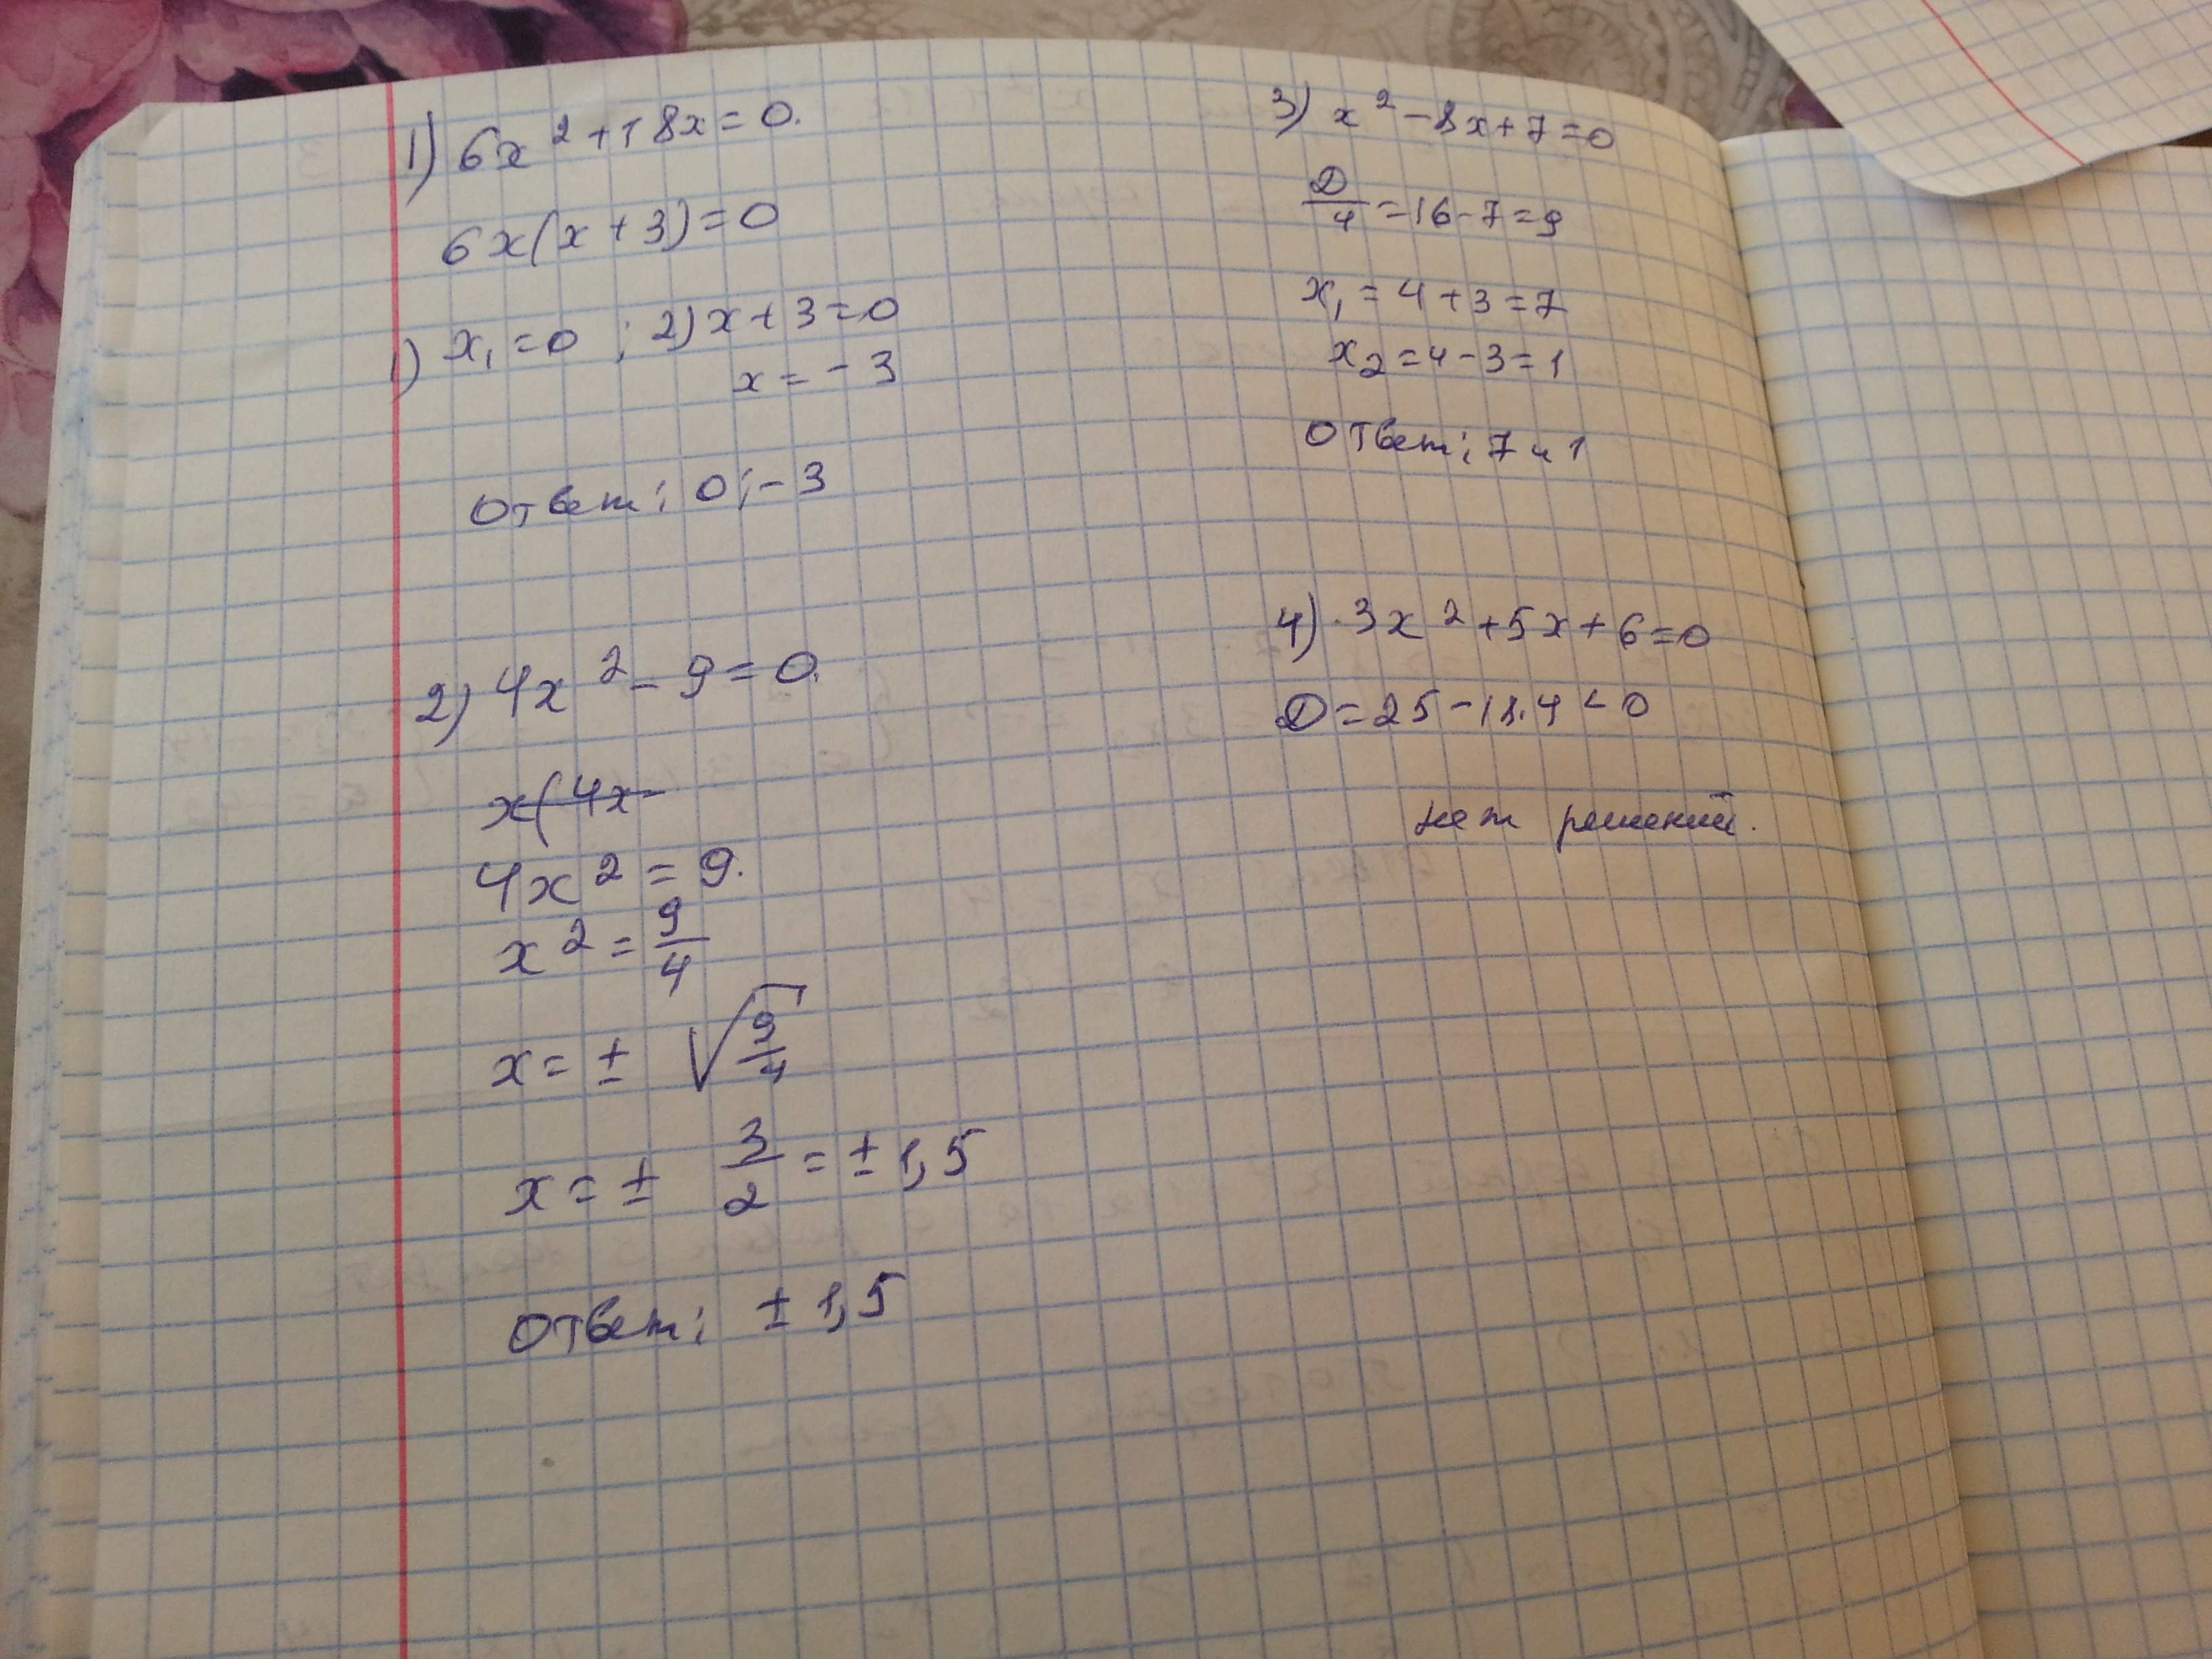 1) 6x² + 18x = 0.
6x(x + 3) = 0
1) x₁ = 0 ; 2) x + 3 = 0
x = - 3
Ответ: 0; - 3
2) 4x² - 9 = 0.
x(4x -
4x² = 9.
x² = 9/4
x = ± √(9/4)
x = ± 3/2 = ± 1,5
Ответ: ± 1,5
3) x² - 8x + 7 = 0
D/4 = 16 - 7 = 9
x₁ = 4 + 3 = 7
x₂ = 4 - 3 = 1
Ответ: 7 и 1
4) 3x² + 5x + 6 = 0
D = 25 - 18·4 < 0
нет решений.